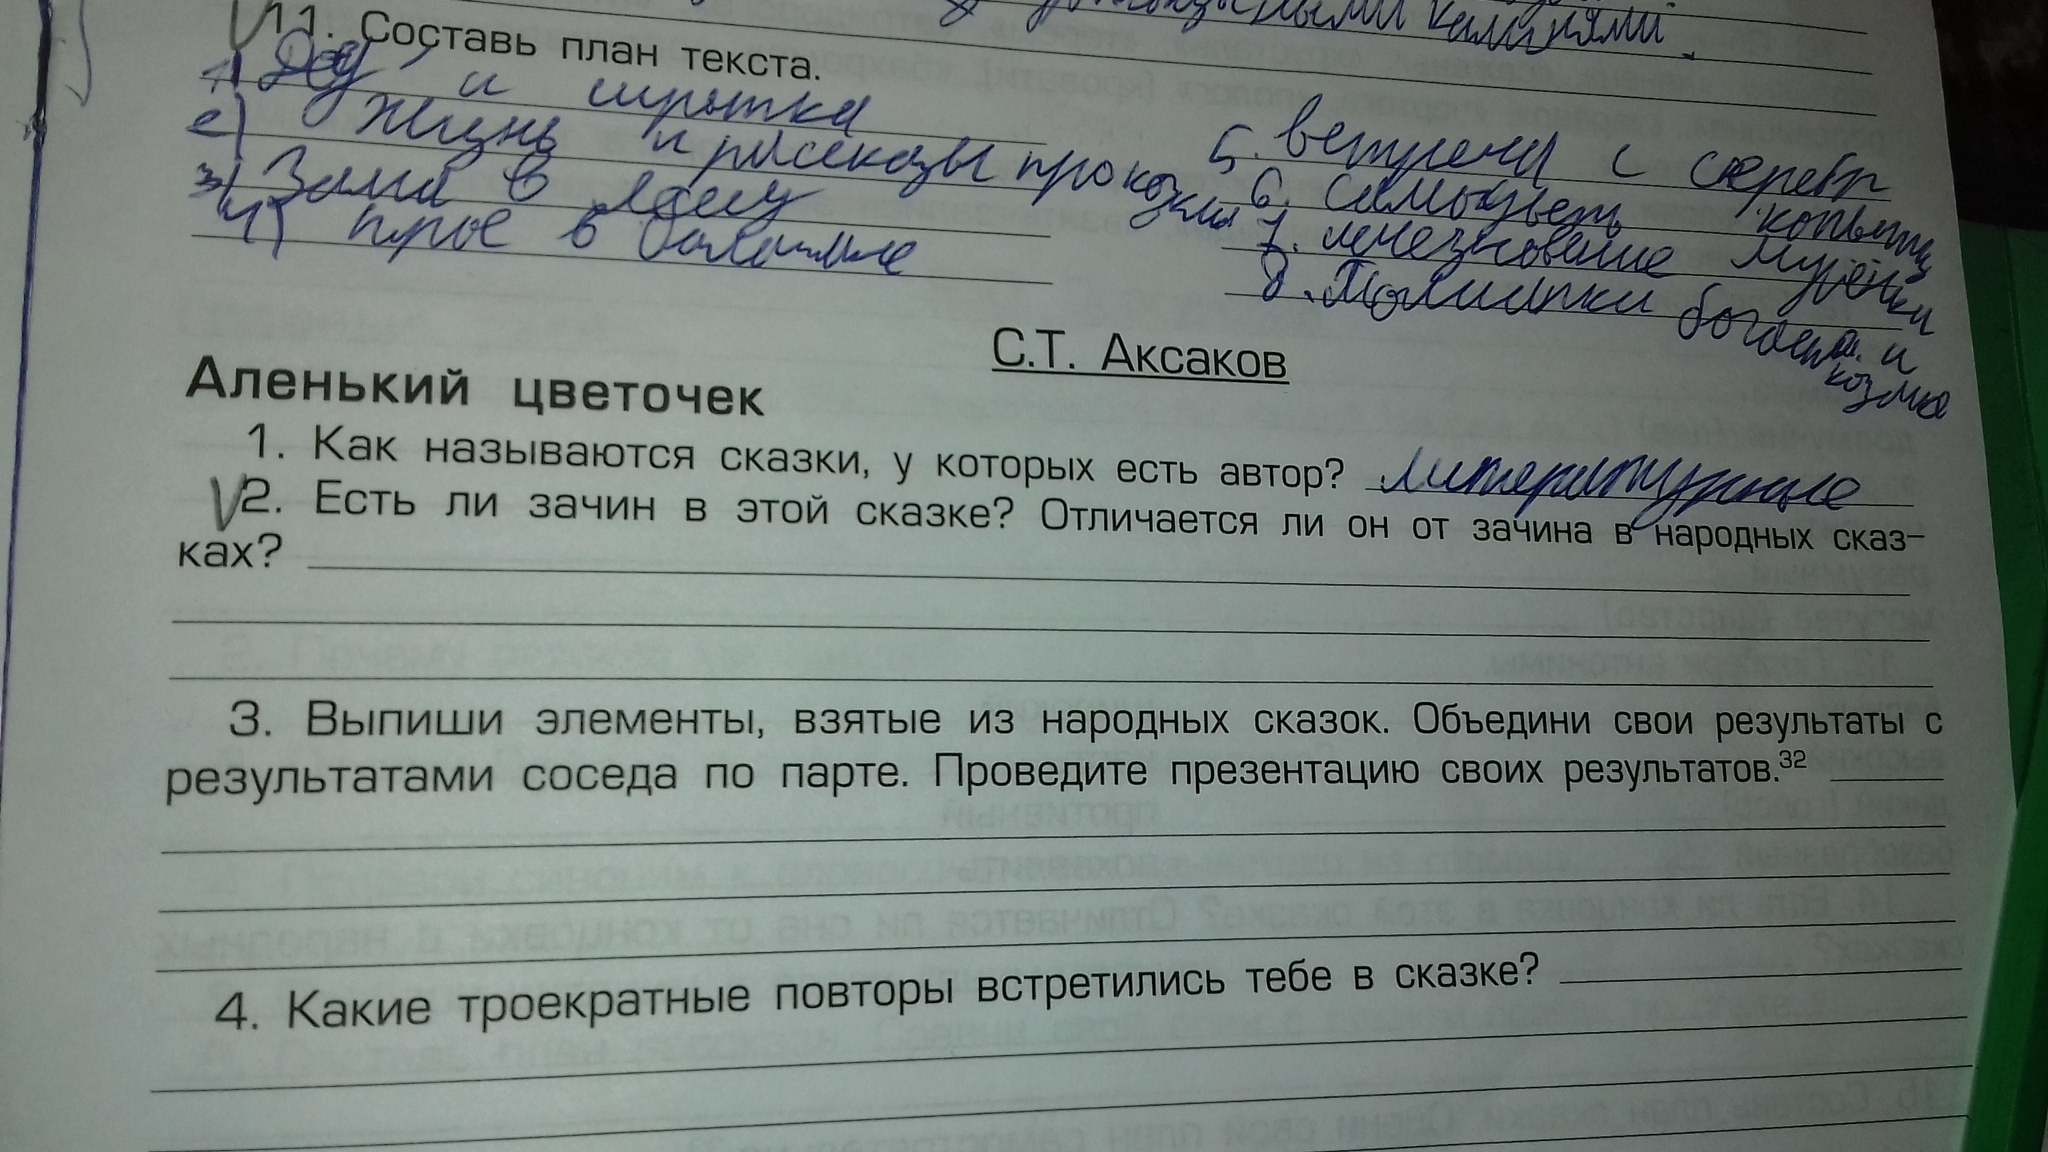 драгоценными камнями.
11. Составь план текста.
1) Дед и сиротка
2) Жизнь и рассказы про козла
3) Зима в лесу
4) трое в балагане
5. встреча с серебр копытц
6. самоцветы
7. исчезновение Мурёнки и
8. Поиски богатст. и
козла
С.Т. Аксаков
Аленький цветочек
1. Как называются сказки, у которых есть автор? литературные
2. Есть ли зачин в этой сказке? Отличается ли он от зачина в народных сказ-
ках?
3. Выпиши элементы, взятые из народных сказок. Объедини свои результаты с
результатами соседа по парте. Проведите презентацию своих результатов.32
4. Какие троекратные повторы встретились тебе в сказке?